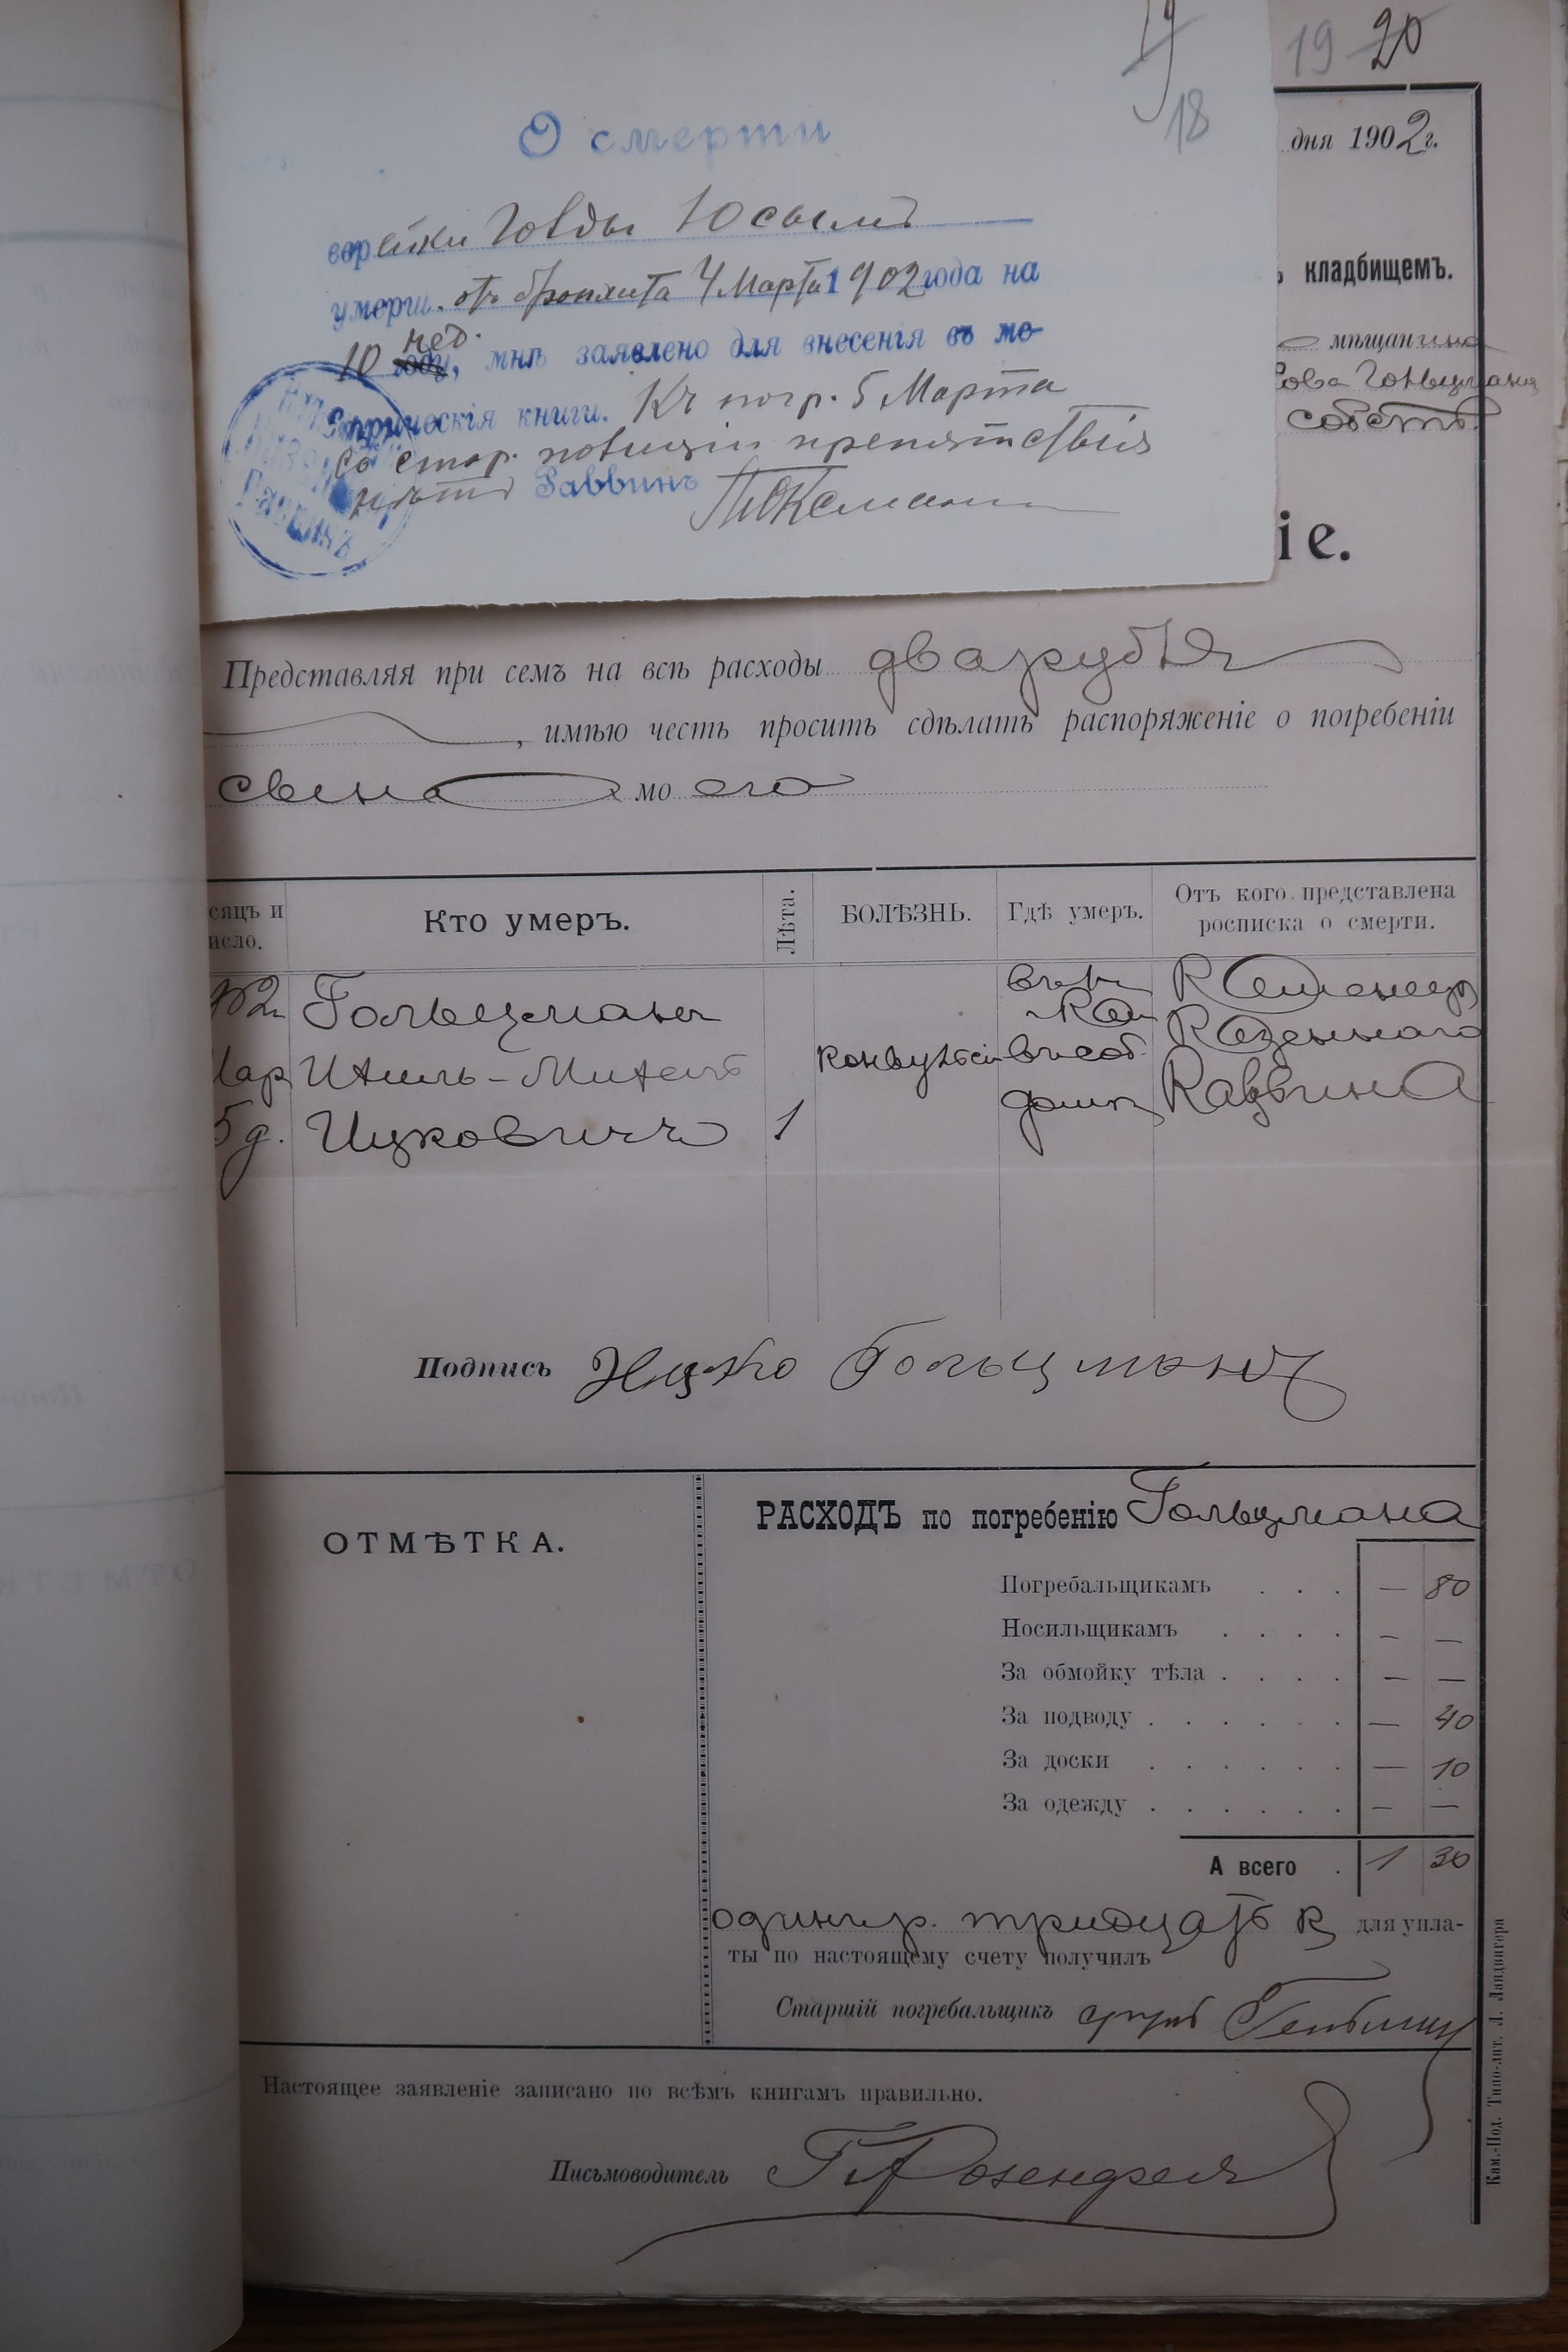 19
18
19 20
О смерти
еврейки Гольды Юсымъ
умерш. отъ бронхита 4 Марта 1902 года на
нед.
10 году, мнѣ заявлено для внесенія въ ме-
трическія книги. Къ погр. 5 Марта
со стор. полиціи препятствія
нѣтъ Раввинъ
дня 1902 г.
кладбищемъ.
мѣщанина
Гольцмана
собств.
іе.
Представляя при семъ на всѣ расходы два рубля
, имѣю честь просить сдѣлать распоряженіе о погребеніи
сына моего
сяцъ и
исло.
Кто умеръ.
Лѣта.
БОЛѢЗНЬ.
Гдѣ умеръ.
Отъ кого представлена
росписка о смерти.
Гольцманъ
Ихиль-Михель
Ицковичъ
5 д.
1
конвульсіи
въ соб.
домѣ
Казеннаго
Раввина
Подпись Ицко Гольцманъ
ОТМѢТКА.
РАСХОДЪ по погребенію Гольцмана
Погребальщикамъ . . . — 80
Носильщикамъ . . . . — —
За обмойку тѣла . . . . — —
За подводу . . . . . . — 40
За доски . . . . . . — 10
За одежду . . . . . . — —
А всего . 1 30
одинъ р. тридцать к для упла-
ты по настоящему счету получилъ
Старшій погребальщикъ
Настоящее заявленіе записано по всѣмъ книгамъ правильно.
Письмоводитель Розенфельд
Кам.-Под. Типо-лит. Л. Ландвигера